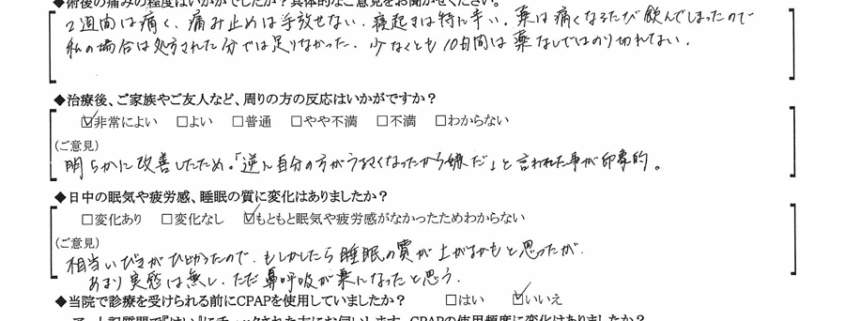 ◆術後の痛みの程度はいかがでしたか？具体的なご意見をお聞かせください。
2週間は痛く、痛み止めは手放せない。寝起きは特に辛い。薬は痛くなるたび飲んでしまったので
私の場合は処方された分では足りなかった。少なくとも10日間は薬なしではのり切れない。
◆治療後、ご家族やご友人など、周りの方の反応はいかがですか？
☑非常によい　□よい　□普通　□やや不満　□不満　□わからない
(ご意見)
明らかに改善したため。「逆に自分の方がうるさくなったから嫌だ」と言われた事が印象的。
◆日中の眠気や疲労感、睡眠の質に変化はありましたか？
□変化あり　□変化なし　☑もともと眠気や疲労感がなかったためわからない
(ご意見)
相当いびきがひどかったので、もしかしたら睡眠の質が上がるかもと思ったが、
あまり実感は無し、ただ鼻呼吸が楽になったと思う。
◆当院で診療を受けられる前にCPAPを使用していましたか？　□はい　☑いいえ